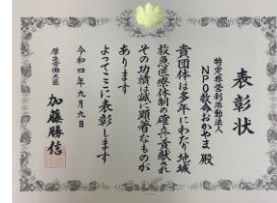 表彰状
特定非営利活動法人
NPO救命おかやま 殿
貴団体は多年にわたり地域
救急医療体制の確立に貢献され
その功績は誠に顕著なものが
あります
よってここに表彰します
令和四年九月九日
厚生労働大臣
加藤勝信